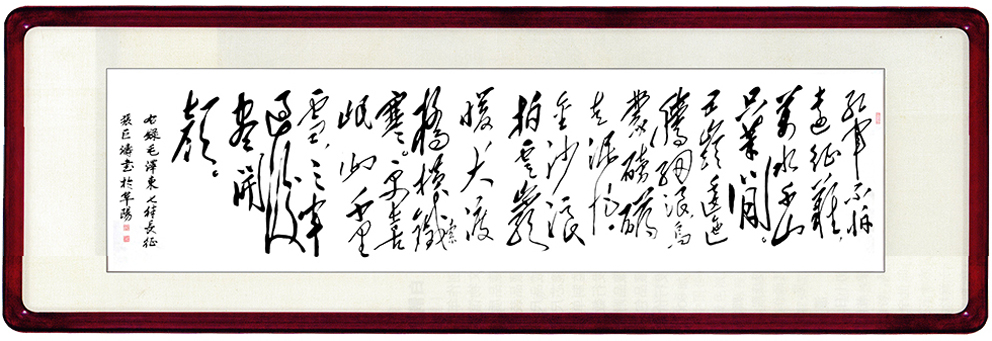 紅軍不怕
遠征難，
萬水千山
只等閒。
五嶺逶迤
騰細浪烏
蒙磅礴
走泥丸。
金沙浪
拍雲崖
暖大渡
橋橫鐵索
寒。更喜
岷山千里
雪，三軍
過後
盡開
顏。
右錄毛澤東七律長征
張巨濤書於阜陽